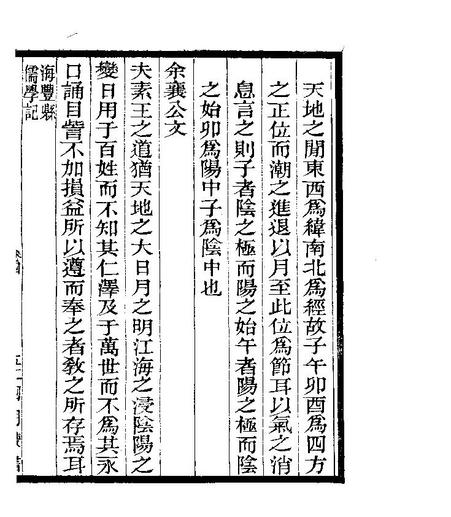 天地之間東西爲緯南北爲經故子午卯酉爲四方
之正位而潮之進退以月至此位爲節耳以氣之消
息言之則子者陰之極而陽之始午者陽之極而陰
之始卯爲陽中子爲陰中也
余襄公文
夫素王之道猶天地之大日月之明江海之浸陰陽之
變日用于百姓而不知其仁澤及于萬世而不爲其永
口誦目眥不加損益所以遵而奉之者教之所存焉耳
海豐縣
儒學記